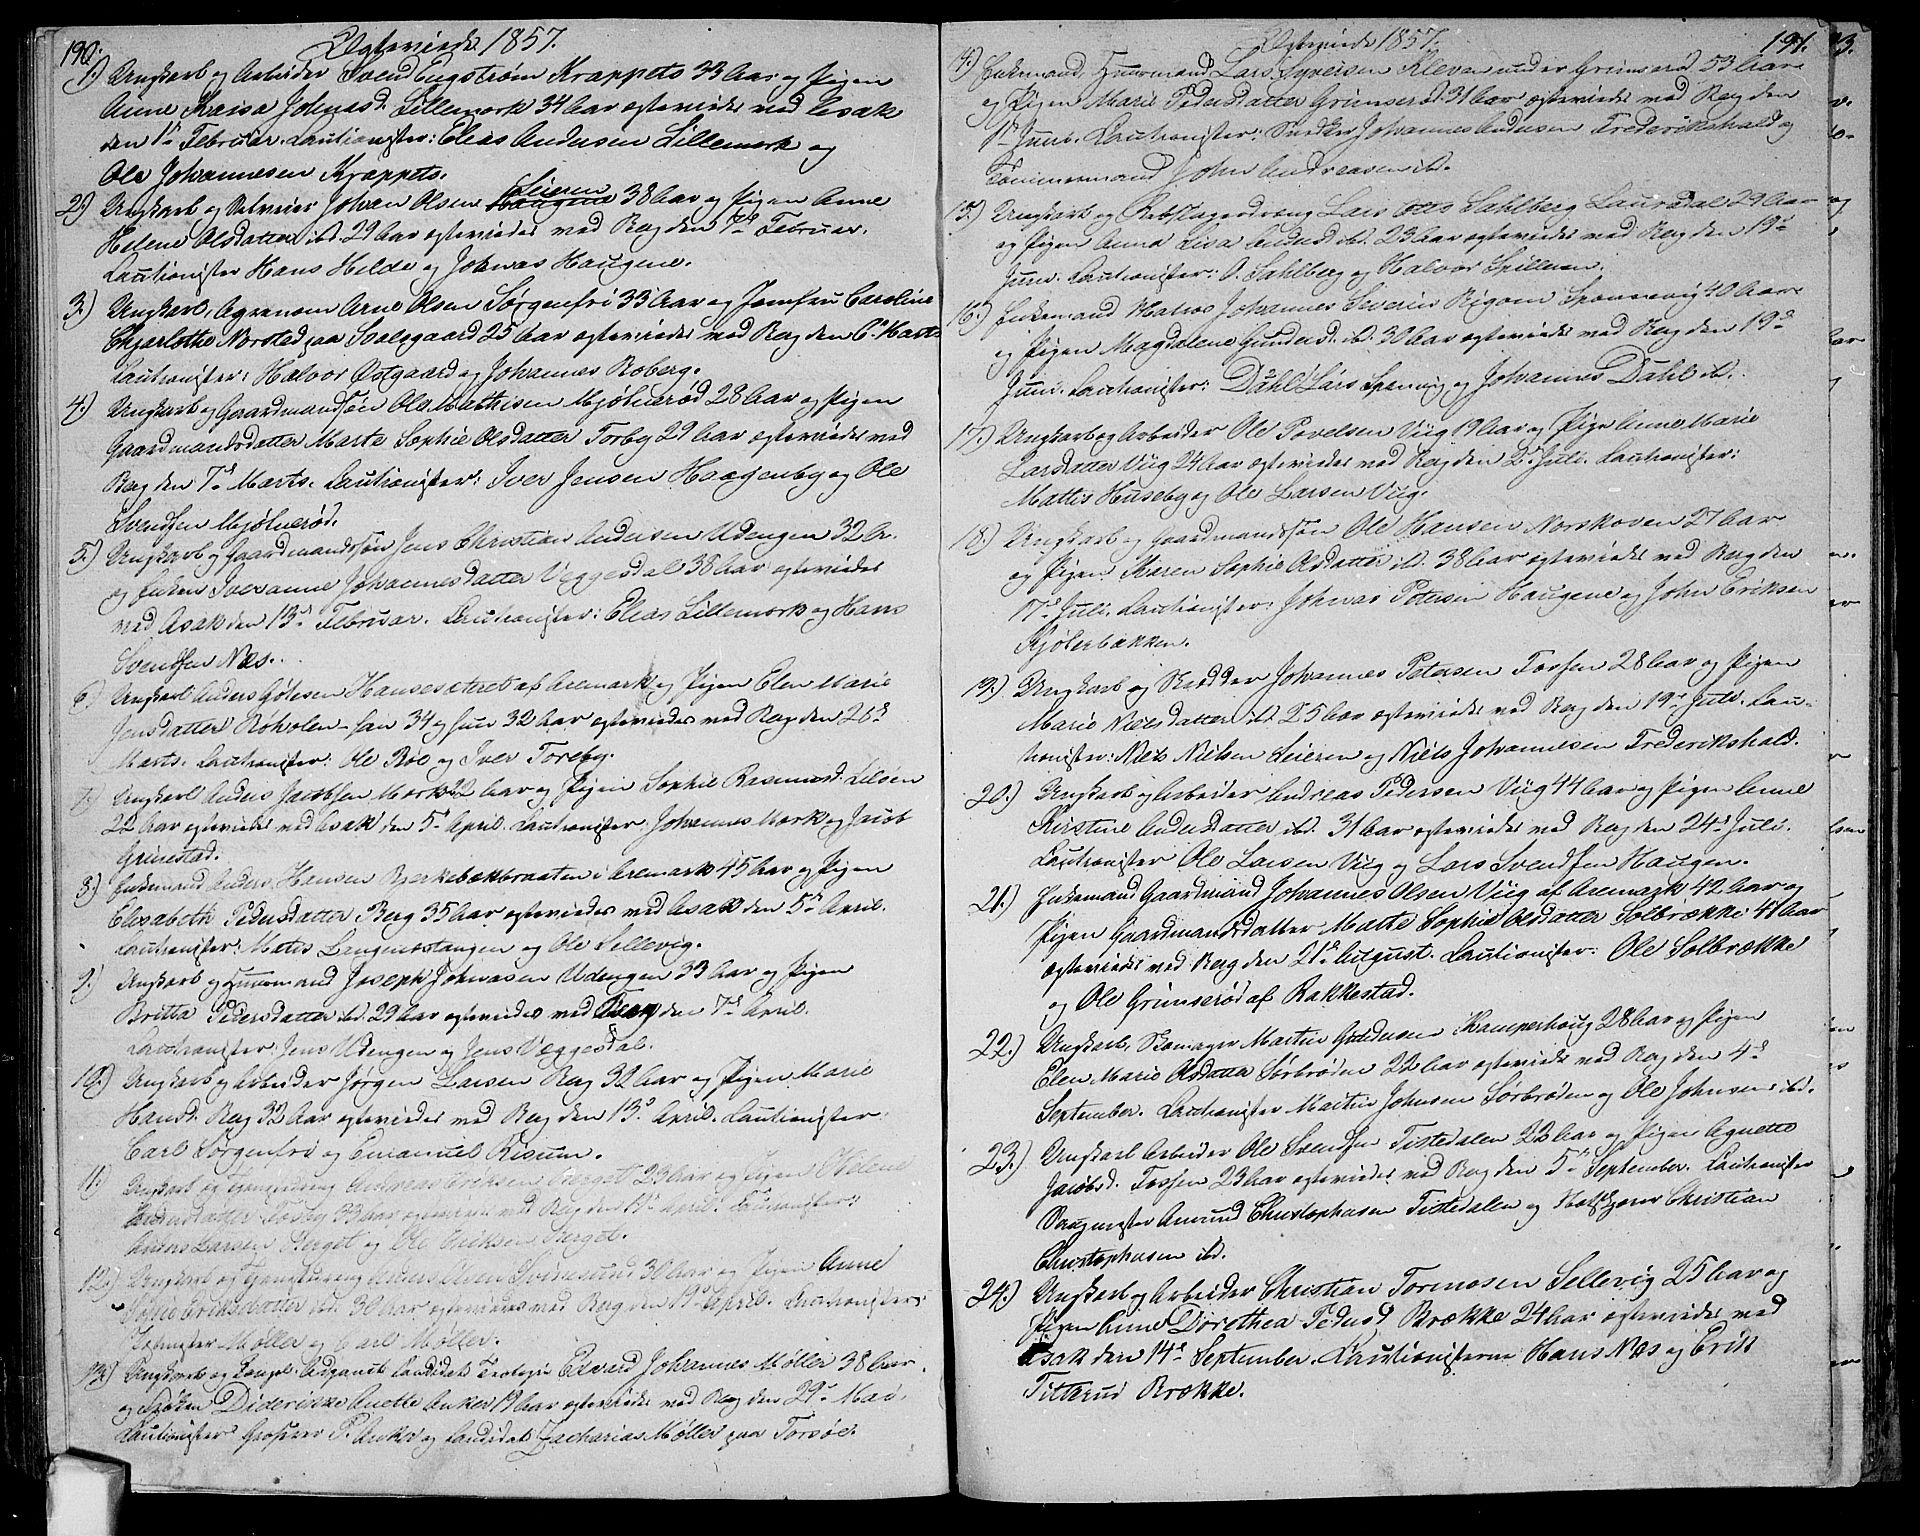 190.
Egteviede 1857.
1.) Ungkarl og Arbeider Svend Engstrøm Krappets 33 Aar og Pigen
Anne Kaisa Johnasd. Lillemork 34 Aar egteviede ved Asak
den 1ste Februar. Cautionister: Elias Andersen Lillemork og
Ole Johannesen Krappets.
2.) Ungkarl og Selveier Johan Olsen Haugene Leieren 38 Aar og Pigen Anne
Helene Olsdatter ibd. 29 Aar egteviedes ved Berg den 9de Februar.
Cautionister Hans Helde og Johnas Haugene.
3.) Ungkarl, Agronom Arne Olsen Sørgenfri 33 Aar og Jomfru Caroline
Charlothe Norsted paa Soelsgaard 25 Aar egteviedes ved Berg den 6te Marts
Cautionister: Halvor Østgaard og Johannes Roberg.
4.) Ungkarl og Gaardmandssøn Ole Mathisen Mjølnerød 28 Aar og Pigen
Gaardmandsdatter Marte Sophie Olsdatter Torby 29 Aar egteviedes ved
Berg den 7de Marts. Cautionister: Iver Jensen Haagenby og Ole
Svendsen Mjølnerød.
5.) Ungkarl og Gaardmandssøn Jens Christian Andersen Udengen 32 A.
og Enken Iveranne Johannesdatter Veggesdal 38 Aar egteviedes
ved Asak den 13de Februar. Cautionister: Elias Lillemork og Hans
Svendsen Næs.
6.) Ungkarl Anders Hansesæteret af Aremark og Pigen Elen Marie
Jensdatter Roholen - han 34 og hun 32 Aar egteviedes ved Berg den 26de
Marts. Cautionister: Ole Røe og Iver Toreby.
7.) Ungkarl Anders Jacobsen Mork 22 Aar og Pigen Sophie Rasmusd. Liløen
22 Aar egteviedes ved Asak den 5te April. Cautionister: Johannes Mork og Jacob
Grimestad.
8.) Enkemand Anders Hansen Bjerkebækbraaten i Aremark 45 Aar og Pigen
Elisabeth Pedersdatter Berg 35 Aar egteviedes ved Asak den 5te April.
Cautionister: Matis Langemostangen og Ole Sellevig.
9.) Ungkarl og Huusmand Joseph Johnasen Udengen 33 Aar og Pigen
Britta Pedersdatter ibd. 29 Aar egteviedes ved Berg den 7de April.
Cautionister: Jens Udengen og Jens Veggesdal.
10.) Ungkarl og Arbeider Jørgen Larsen Berg 30 Aar og Pigen Marie
Hansd. Berg 32 Aar egteviedes ved Berg den 13de April. Cautionister:
Carl Sørgenfri og Emanuel Risum.
11.) Ungkarl og Andreas Eriksen Berget 23 Aar og Pigen Helene
Andersdatter Torby 33 Aar egteviedes ved Berg den 19de April. Cautionister:
Anders Larsen Berget og Ole Eriksen Berget.
12.) Ungkarl og Anders Olsen Svinesund 30 Aar og Pigen Anne
Sofie Eriksdatter ibd. 30 Aar egteviedes ved Berg den 19de April. Cautionister:
Møller og Carl Møller.
13.) Ungkarl og Adjunct Candidat Teologie Edvard Johannes Møller 38 Aar
og Frøken Dideriche Anette Anker 19 Aar egteviedes ved Berg den 29de Mai.
Cautionister Grosserer P. Anker og Candidat Zacharias Møller paa Torsøe.
191.
Egteviede 1857.
4.) Enkemand, Huusmand Lars Syversen Kleven under Grimserød 53 Aar
og Pigen Marie Pedersdatter Grimserød 31 Aar egteviedes ved Berg den
1ste Juni. Cautionister: Snedker Johannes Andersen Frederikshald og
Tømmermand John Andreasen ibd.
15.) Ungkarl og Rebslagerdreng Lars Otto Sahlberg Laursdal 29 Aar
og Pigen Anna Lisa Andersd. ibd. 23 Aar egteviedes ved Berg den 19de
Juni. Cautionister: O. Sahlberg og Halvor Spilleren.
16.) Enkemand Matros Johannes Severin Bigom Sponnevig 40 Aar
og Pigen Magdalene Gundersd. ibd. 30 Aar egteviedes ved Berg den 19de
Juni. Cautionister: Dahl Lars Sponvig og Johannes Dahl ibd.
17.) Ungkarl og Arbeider Ole Povelsen Viig 19 Aar og Pige Anne Marie
Larsdatter Viig 24 Aar egteviedes ved Berg den 2de Juli. Cautionister:
Mattis Huseby og Ole Larsen Viig.
18.) Ungkarl og Gaardmandssøn Ole Hansen Norskoven 27 Aar
og Pigen Karen Sophie Olsdatter ibd. 38 Aar egteviedes ved Berg den
17de Juli. Cautionister: Johnas Petersen Haugene og John Eriksen
Kjølerbakken.
19.) Ungkarl og Skrædder Johannes Petersen Fossen 28 Aar og Pigen
Marie Nielsdatter ibd. 25 Aar egteviedes ved Berg den 19de Juli. Cau-
tionister: Niels Nilsen Leieren og Niels Johannesen Frederikshald.
20.) Ungkarl og Arbeider Andreas Pedersen Viig 44 Aar og Pigen Anne
Kirstine Andersdatter ibd. 31 Aar egteviedes ved Berg den 24de Juli.
Cautionister Ole Larsen Viig og Lars Svendsen Haugen.
21.) Enkemand Gaardmand Johannes Olsen Viig af Aremark 42 Aar og
Pigen Gaardmandsdatter Matte Sophie Olsdatter Solbrække 41 Aar
egteviedes ved Berg den 21de August. Cautionister: Ole Solbrække
og Ole Grimserød af Rakkestad.
22.) Ungkarl, Skomager Martin Gudersen Kamperhoug 28 Aar og Pigen
Elen Marie Olsdatter Sørbrøden 22 Aar egteviedes ved Berg den 4de
September. Cautionister Martin Johnsen Sørbrøden og Ole Johnsen ibd.
23.) Ungkarl Arbeider Ole Svendsen Tistedalen 22 Aar og Pigen Agnette
Jacobsd. Fossen 23 Aar egteviedes ved Berg den 5te September. Cautionister
Saugmester Amund Christophersen Tistedalen og Christian
Christophersen ibd.
24.) Ungkarl og Arbeider Christian Tormosen Sellevig 25 Aar og
Pigen Anne Dorothea Pedersd. Brække 24 Aar egteviedes ved
Asak den 14de September. Cautionisterne Hans Næs og Erik
Titterud Brække.